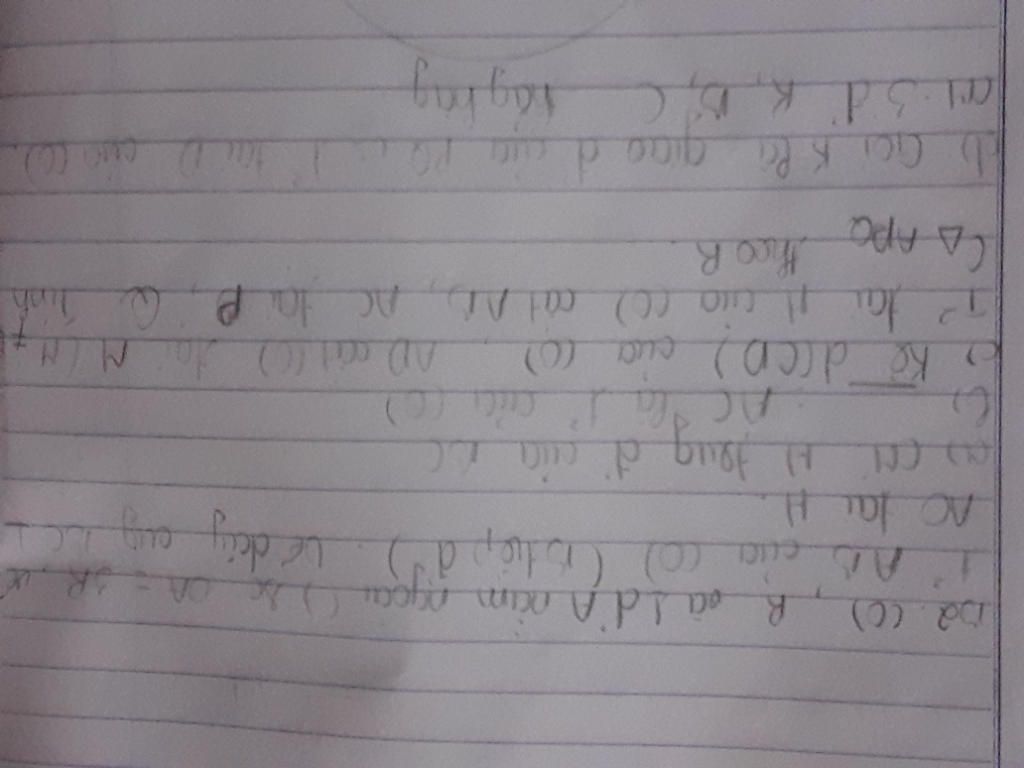 B2 (O), R và 1 đ' A nằm ngoài () sc OA = 3R. vẽ
T² AB của (O) (B tiếp đ'). Vẽ dây cung BC ⊥
AO tại H.
a) CM H trung đ' của BC
b) AC là T² của (O)
c) Kẻ d(CD) của (O), AD cắt (O) tại M (M ≠
T² tại M của (O) cắt AB, AC tại P, Q Tính
C△ APQ theo R.
d) Gọi K là giao đ của PQ T² tại D của (O).
CM 3 đ' K, B, C thẳng hàng